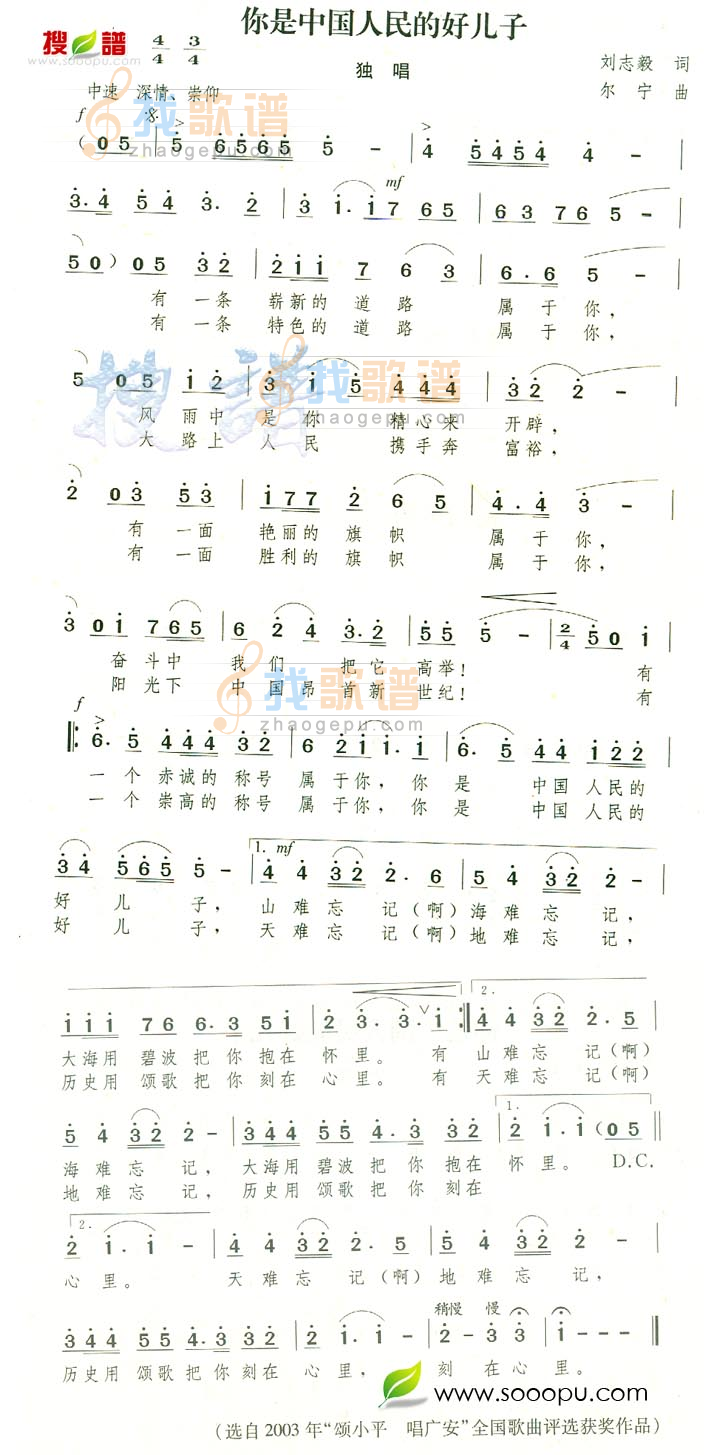 你是中国人民的好儿子
搜谱
www.sooopu.com
4/4 3/4
独 唱
刘志毅 词
尔 宁 曲
中速 深情、崇仰
找歌谱
zhaogepu.com
f
(0 5 | 5 6 5 6 5 5 - | 4 5 4 5 4 4 - |
mf
3. 4 5 4 3. 2 | 3 1. 1 7 6 5 | 6 3 7 6 5 - |
5 0 ) 0 5 3 2 | 2 1 1 7 6 3 | 6. 6 5 - |
有 一条 崭新的 道 路 属 于 你,
有 一条 特色的 道 路 属 于 你,
搜谱
找歌谱
zhaogepu.com
5 0 5 1 2 | 3 1 5 4 4 4 | 3 2 2 - |
风 雨中 是 你 精心来 开 辟,
大 路上 人 民 携手奔 富 裕,
2 0 3 5 3 | 1 7 7 2 6 5 | 4. 4 3 - |
有 一面 艳丽的 旗 帜 属 于 你,
有 一面 胜利的 旗 帜 属 于 你,
3 0 1 7 6 5 | 6 2 4 3. 2 | 5 5 5 - | 2/4 5 0 1 |
奋 斗中 我 们 把它 高举! 有
阳 光下 中 国昂 首新 世纪! 有
找歌谱
zhaogepu.com
f
‖: 6. 5 4 4 4 3 2 | 6 2 1 1. 1 | 6. 5 4 4 1 2 2 |
一 个 赤诚的 称号 属 于你, 你 是 中国 人民的
一 个 崇高的 称号 属 于你, 你 是 中国 人民的
1. mf
3 4 5 6 5 5 - | 4 4 3 2 2. 6 | 5 4 3 2 2 - |
好 儿 子, 山 难 忘 记(啊) 海 难 忘 记,
好 儿 子, 天 难 忘 记(啊) 地 难 忘 记,
2.
1 1 1 7 6 6. 3 5 1 | 2 3. 3. 1 :‖ 4 4 3 2 2. 5 |
大海用 碧波 把 你 抱在 怀 里。 有 山 难 忘 记(啊)
历史用 颂歌 把 你 刻在 心 里。 有 天 难 忘 记(啊)
1.
5 4 3 2 2 - | 3 4 4 5 5 4. 3 3 2 | 2 1. 1 (0 5 ‖
海 难 忘 记, 大海用 碧波 把 你 抱在 怀 里。 D.C.
地 难 忘 记, 历史用 颂歌 把 你 刻在
2.
2 1. 1 - | 4 4 3 2 2. 5 | 5 4 3 2 2 - |
心 里。 天 难 忘 记(啊) 地 难 忘 记,
稍慢 慢
3 4 4 5 5 4. 3 3 2 | 2 1. 1 - | 2 3 3 2 | 1 - - - ‖
历史用 颂歌 把你 刻在 心 里, 刻 在 心里。
www.sooopu.com
(选自 2003 年“颂小平 唱广安”全国歌曲评选获奖作品)